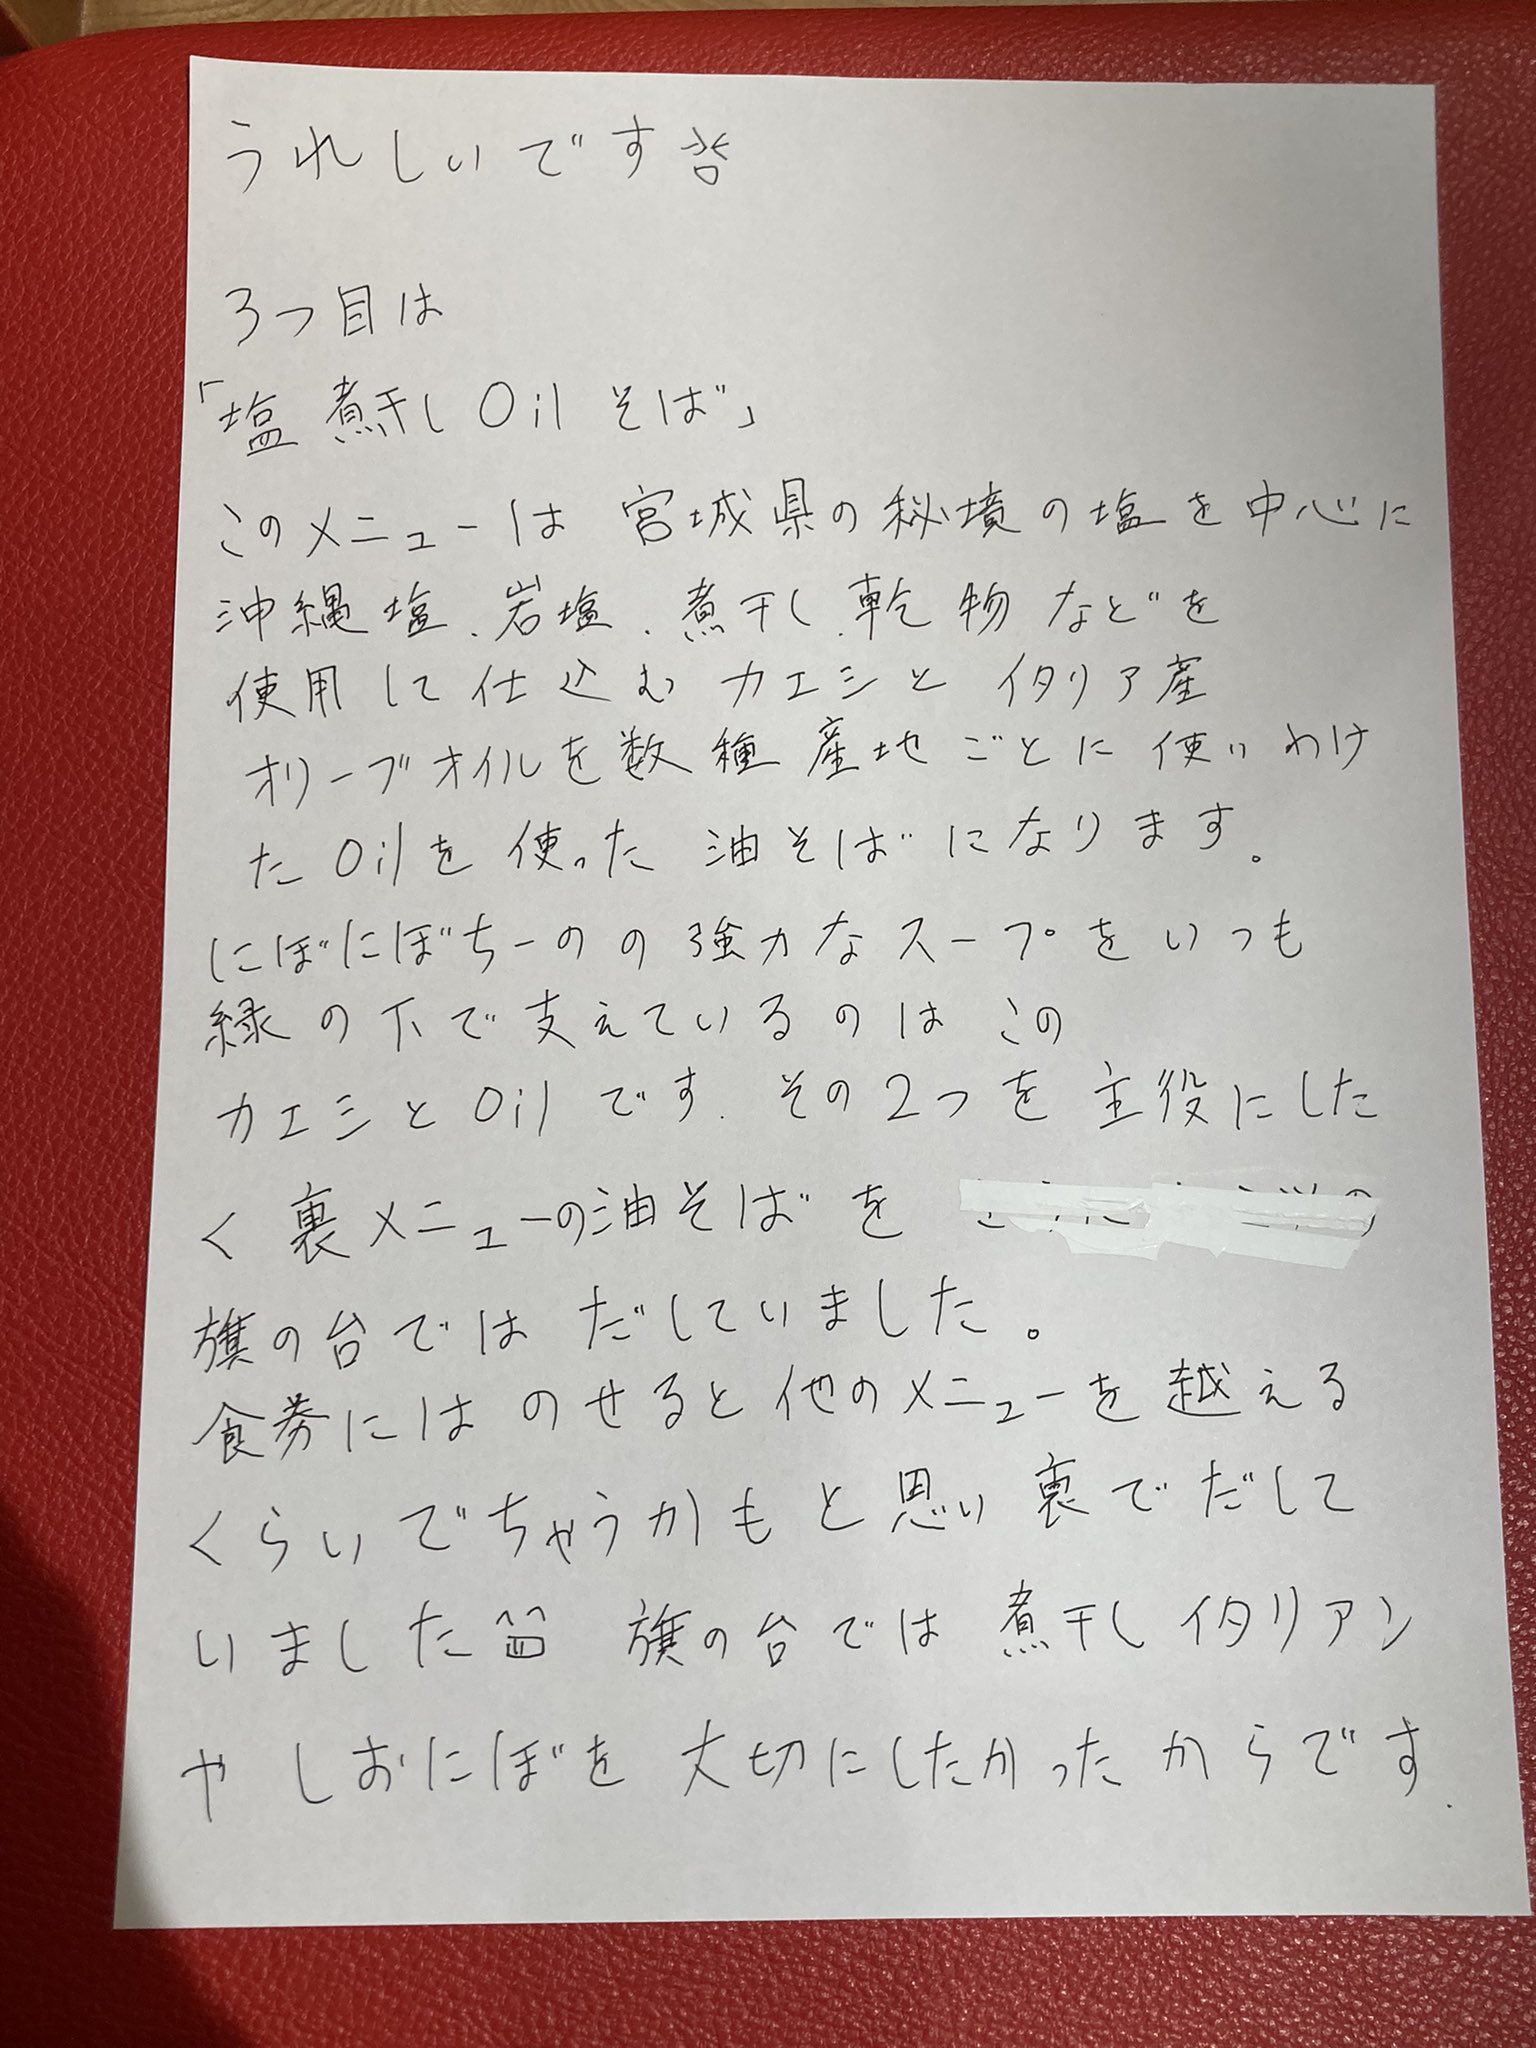 うれしいです
3つ目は
「塩煮干しOilそば」
このメニューは 宮城県の秘境の塩を中心に
沖縄塩、岩塩、煮干し、乾物などを
使用して仕込むカエシと イタリア産
オリーブオイルを数種産地ごとに使いわけ
たOilを使った 油そばになります。
にぼにぼちーのの強力なスープをいつも
緑の下で支えているのは この
カエシとOilです。その2つを主役にした
く裏メニューの油そばを
旗の台では だしていました。
食券にはのせると他のメニューを越える
くらいでちゃうかもと思い裏でだして
いました 旗の台では煮干しイタリアン
や しおにぼを大切にしたかったからです.